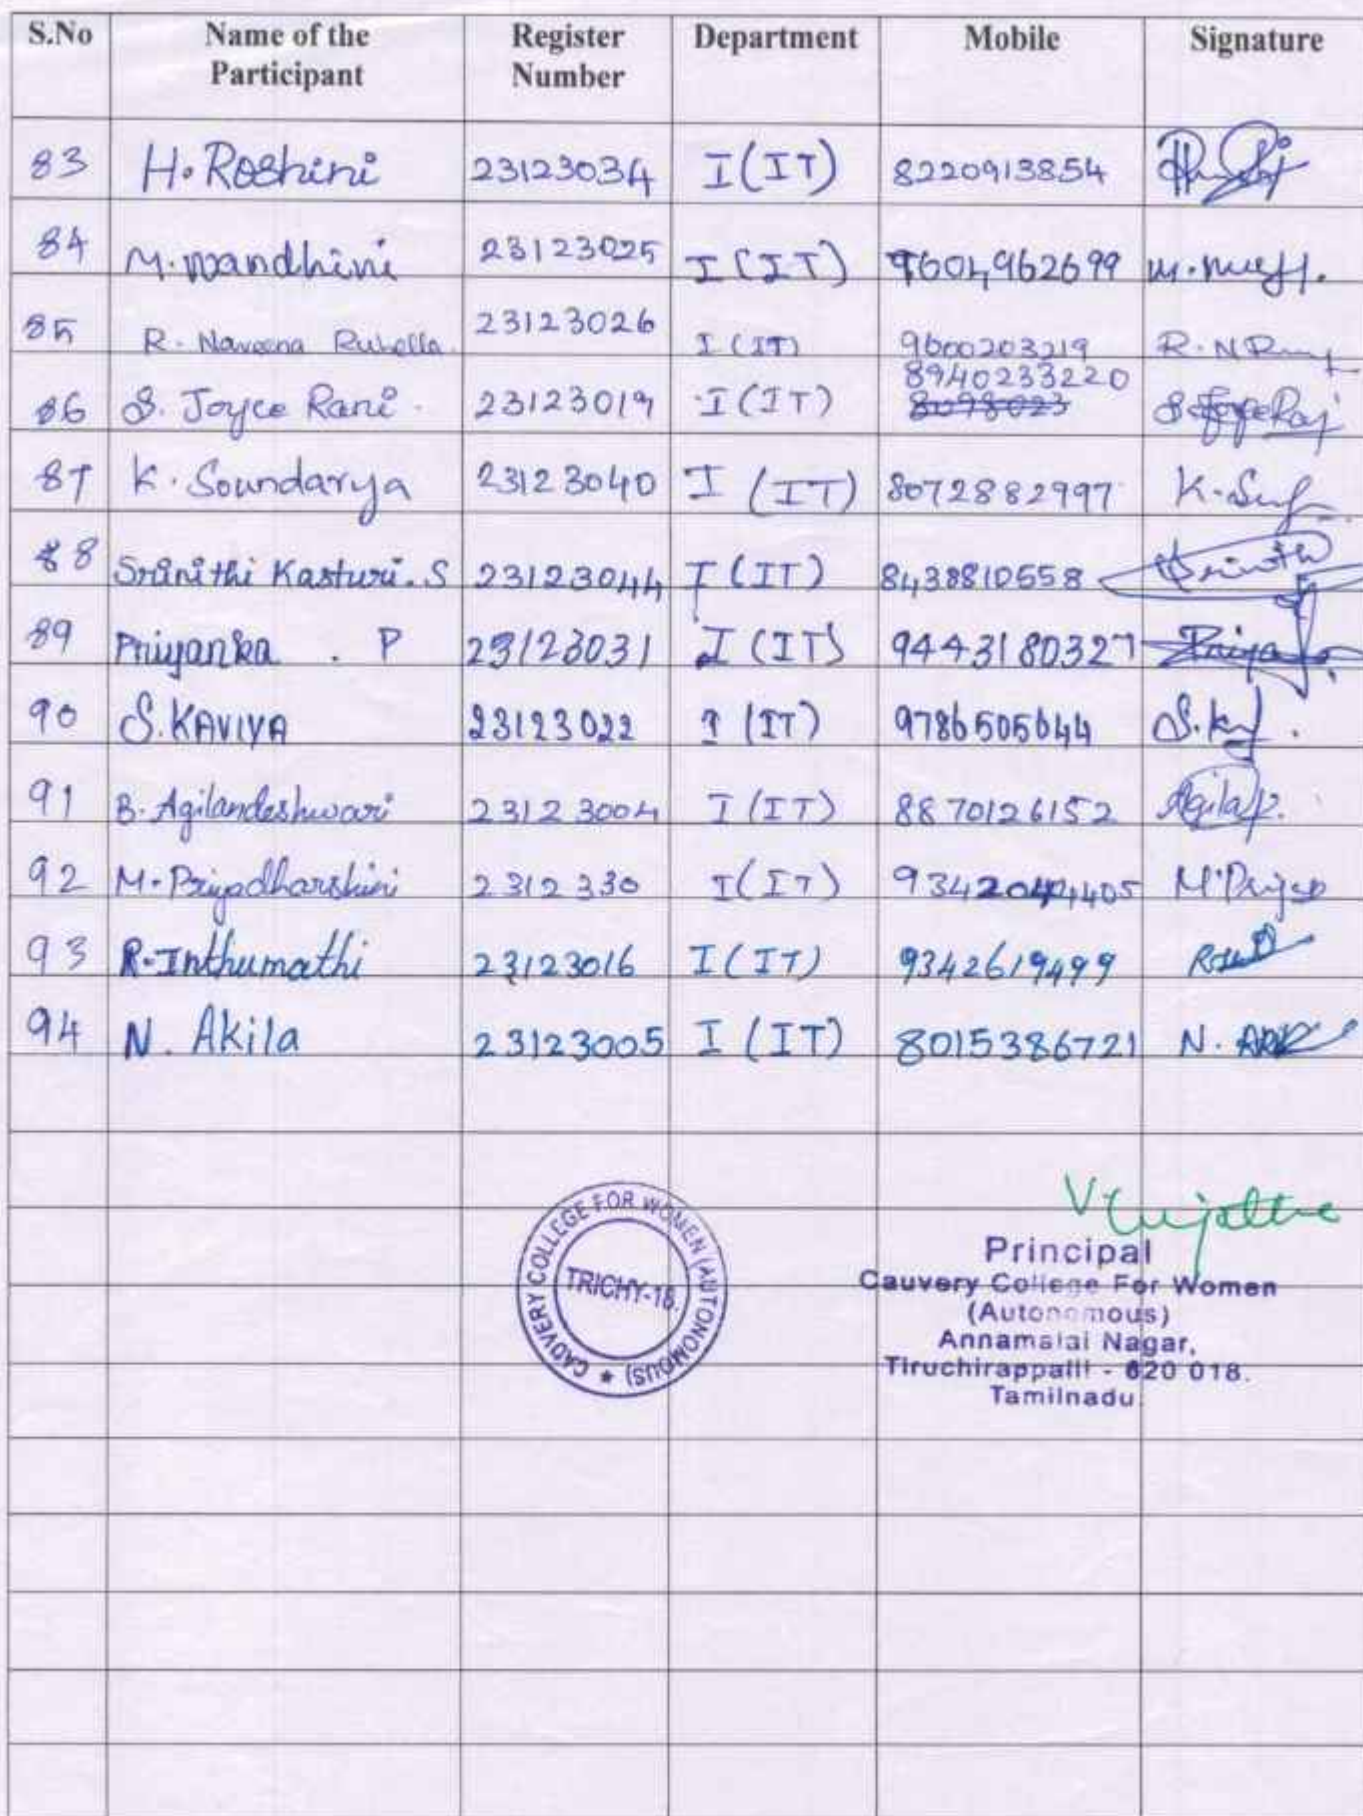 S.No Name of the Participant Register Number Department Mobile Signature
83 H. Roshini 23123034 I (IT) 8220913854
84 M. Nandhini 23123025 I (IT) 9604962699
85 R. Naveena Rubella. 23123026 I (IT) 9600203219 R. N
86 S. Joyce Rani. 23123019 I (IT) 8940233220
87 K. Soundarya 23123040 I (IT) 8072882997
88 Srinithi Kasturi. S 23123044 I (IT) 8438810558
89 Priyanka . P 23123031 I (IT) 9443180327 Priya
90 S. KAVIYA 23123022 I (IT) 9786505644
91 B. Agilandeshwari 23123004 I (IT) 8870126152 Agila
92 M. Priyadharshini 2312330 I (IT) M. Priya
93 R. Inthumathi 23123016 I (IT) 9342619499
94 N. Akila 23123005 I (IT) 8015386721 N.
CAUVERY COLLEGE FOR WOMEN (AUTONOMOUS) ★
TRICHY-18.
Principal
Cauvery College For Women
(Autonomous)
Annamalai Nagar,
Tiruchirappalli - 620 018.
Tamilnadu.